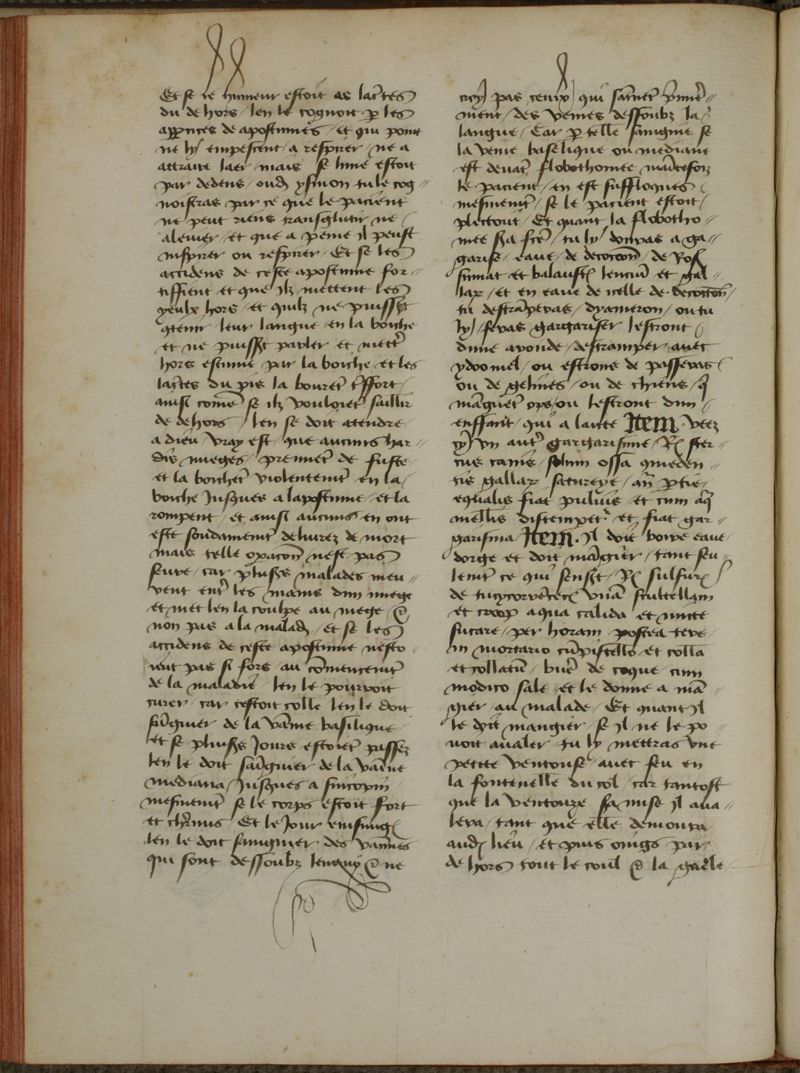 Et se ce humeur estoit as lactes
du de hors / len le cognoit p les
appnces de apostumes / et qui point
ne ly empeschent a respirer ne a
attraire laer mais se lume estoit
par dedens / oud ysmon tu le cog
noistras par ce que le pacient
ne peut riens transgloutir ne
alener / et que a peine il peust
inspirer ou respirer / Et se les
accidens de ceste apostume for
tiffient et que ilz mettent les
yeulx hors / et quilz ne puissent
qtenir leur langue en la boiche
et ne puisset parler et mettre
hors escume par la boiche et les
lactes du pis la bouret tssort /
ainsi come se ilz vouloiet saillir
de dehors / len se doit atendre
a dieu vray est / que aucuns har
dis mieges / prennet de fuste
et la boichet violentemt en la
boiche jusques a lapostume / et la
rompent / et ainsi aucuns en ont
este soudainemt deliurez de mort
mais telle opacon nest pas
seure / car pluss malades meu
rent entre les mains dun miege
et met len la coulpe au miege &
non pas a la malad / et se les
accidens de ceste apostume nesto
ient pas si fors au comencemt
de la maladie / len le pourroit
curer / car cestoit colle len le doit
saignier de la vaine basilique
et se pluss jours estoiet passez
len le doit saignier de la vaine
mediana / jusques a sincopin
mesmemt se le corps estoit fort
et charnus / Et le jour ensuing
len le doit sainguier des vainnes
qui sont dessoubz lengny & ne
croy pas ceulx qui saincet pmie
ment / des veines dessoubz la
langue / Car p telle saingnie se
la veine basilique ou mediane
est deuat flobothomee maintesfoiz
le pacient / en est suffloques
mesmemt / se le pacient estoit
plectout / Et quant la flobotho
mee sa fte / tu ly donras a ga
garise / eaue de decocon / de Ros
sumat et balaust lencius et gal
lar / et en eaue de icelle de decoction
tu destramperas / dyameron / ou tu
ly feras gargariser lestront
dune aronde / destramper auec
ydromel / ou estrons de passeras
ou de gelines / ou de chiens / q
manguet ops / ou lestront dun
enffant / qui a laite Item / veez
cy un autre gargarisme / R ster
cus canis / solum ossa comeden
tis gallar satureye / an ptes
equalis fiat puluis et cum aq
mellis distempet / et fiat gar
garisma / Item / Il doit boire eaue
dorge et doit mangier / tant seu
lemt ce qui sensuit / R sulfur
de cucycoruete una scultellam
et coop aqua calida et mitte
sucare / per horam / postea tere
in mortario cu pistello et colla
et collatu / buer de coque cum
modico sale / et le donne a man
gier au malade / Et quant il
le doit mangier se il ne le po
uoit aualer tu ly mettras une
petite ventouse auec feu en
la fontenelle du col / car tantost
que la ventouse sa mise il aua
lera / tant que elle demoura
aud lieu / et puis oings par
de hors tout le coul & la guele